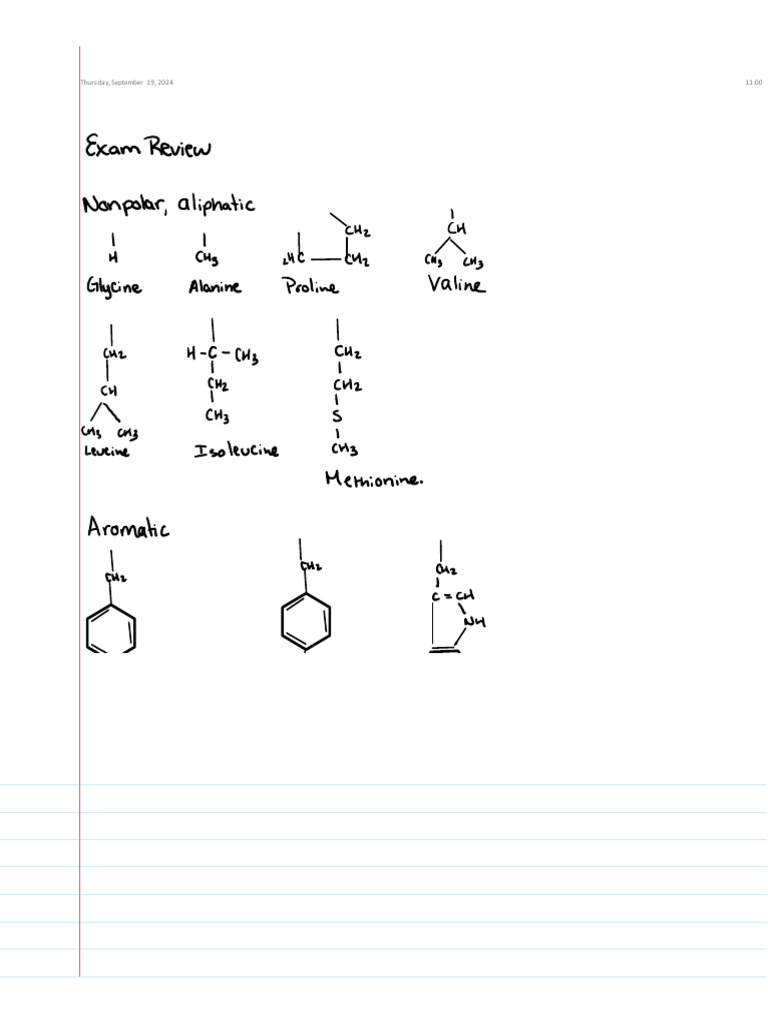 Thursday, September 19, 2024 11:00
Exam Review
Nonpolar, aliphatic
H
CH3
CH2
2HC CH2
CH
CH3 CH3
Glycine Alanine Proline Valine
CH2
CH
CH3 CH3
Leucine
H-C-CH3
CH2
CH3
Isoleucine
CH2
CH2
S
CH3
Methionine.
Aromatic
CH2
CH2
CH2
C=CH
NH